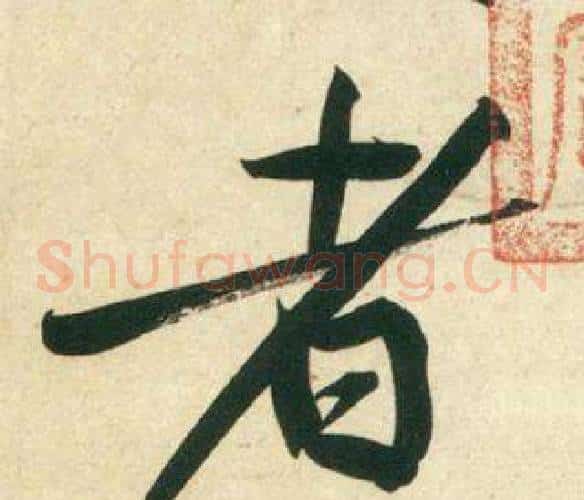 者
Shufawang.CN